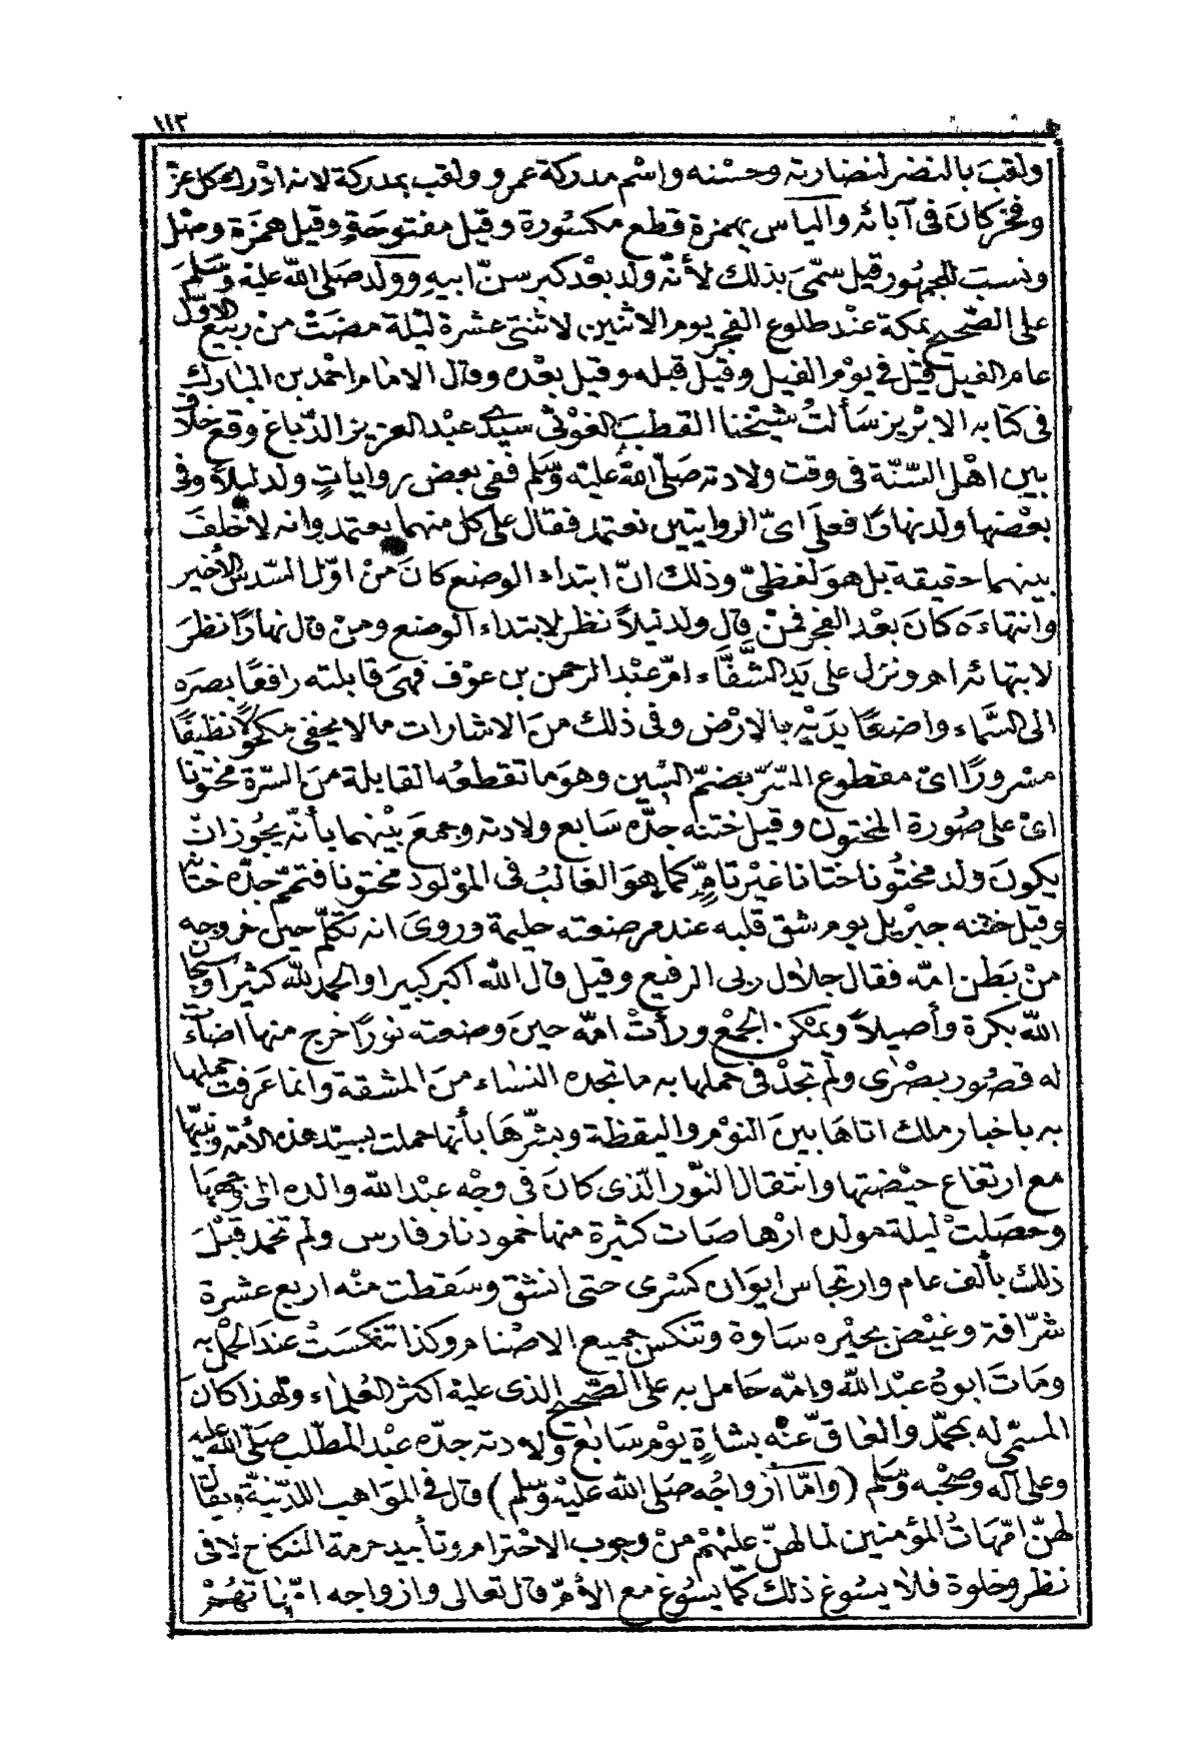 ١١٣
ولقب بالنضر لنضارته وحسْنه واسْم مدركة عمرو ولقب بمدركة لانه ادْرك كل عزّ
وفخر كانَ فى آبائه والياس بهمزة قطع مكسُورة وقيل مفتوحَةٍ وقيل همَزة وصْل
ونسبَ للجمهُور قيل سمّىَ بذلك لأنّه ولد بعْد كبر سنّ ابيهِ وَولد صَلى اللّٰه عليْه وَسَلمَ
على الصّحيح بمكة عنْد طلوع الفجر يوم الاثنين لاثنتى عشرة ليْلة مضَتْ منْ ربيع الاوّل
عام الفيل قيْل فى يوْم الفيل وقيْل قبْله وقيل بعْده وقال الامام احْمد بن المبارك
فى كتابه الابْريز سَألتُ شيْخنا القطبَ الغوْثَ سيّدى عبْد العزيز الدّباغ وقعَ خلاف
بين اهْل السّنّة فى وقت ولادته صَلّى اللّٰه عليْه وَسَلم ففى بعض رواياتٍ ولد ليْلاً وفى
بعْضها ولد نهارًا فعلَى اىّ الروايتين نعتمد فقال على كل منهما يعتمد وانه لا خلفَ
بينهما حقيقة بل هوَ لفظىّ وذلك انّ ابتداء الوضع كانَ منْ اوّل السّدس الأخير
وانتهاءَه كانَ بعْد الفجر فمنْ قال ولد ليْلاً نظر لابتداء الوضع ومنْ قال نهارًا نظرَ
لانتهائه اه ونزل على يَد الشَّفَّاء امّ عبْد الرحمن بن عوْف فهىَ قابلته رافعًا بصَره
الى السَّماء واضعًا يدَيْه بالارْض وفى ذلك منَ الاشارات ما لا يخفى مكحُولاً نظيفًا
مسْرورًا اىْ مقطوع السّرّ بضمّ السّين وهوَ ما تقطعُه القابلة منَ السّرّة مختونا
اىْ على صُورة المختون وقيل ختنه جدّه سَابع ولادته وجمعَ بيْنهما بأنّه يجُوز انْ
يكونَ ولد مختُونا ختانا غيْر تامٍّ كما هوَ الغالبُ فى الموْلود مختونا فتممّ جدّه ختانه
وقيل ختنه جبْريل يوم شق قلبه عند مرضعته حليمة وروىَ انه تكلّم حينَ خروجه
منْ بَطن امّه فقال جلال ربى الرفيع وقيل قال اللّٰه اكبر كبيرا والحمد للّٰه كثيرا وسبحان
اللّٰه بكرة وأصيلاً ويمْكن الجمْع ورأتْ امّه حينَ وضعته نورًا خرج منها اضاءَتْ
له قصُور بصْرى ولم تجدْ فى حملها به ما تجده النساء منَ المشقة وانما عَرفتْ حملها
به باخبار ملك اتاهَا بينَ النوْم واليقظة وبشّرهَا بأنها حملت بسيّد هذه الأمّة ونبيّها
مع ارتفاع حيْضتها وانتقال النّور الّذى كانَ فى وجْه عبْد اللّٰه والده الى وجهها
وحَصَلتْ ليْلة موْلده ارْهاصَات كثيْرة منها خمود نار فارس ولم تخمد قبْلَ
ذلك بألف عام وارتجاس ايوان كسْرى حتى انْشق وسَقطت منْه اربع عشرة
شرّافة وغيْض بحيْره سَاوة وتنكس جميع الاصْنام وكذا تنكسَتْ عندَ الحمْل به
ومَاتَ ابوهُ عبْد اللّٰه وامّه حَامل به على الصّحيح الذى عليْه اكثر العُلماء ولهذا كانَ
المسَمّى له بمحمّد والعَاقّ عنْه بشاةٍ يوْم سَابع ولادته جدّه عبْد المطّلب صَلّى اللّٰه عليه
وعلى آله وصَحْبه وسَلم (وامّا أزْواجُه صَلى اللّٰه عليْه وسَلم) قال فى المَوَاهب اللّدنيّة ويقال
لهنّ امّهَاتُ المؤمنين لما لهنّ عليْهمْ منْ وجوب الاحْترام وتأبيد حرمة النكاح لا فى
نظر وخلوة فلا يسُوغ ذلكَ كمَا يسُوغ مع الأمّ قال تعالى وازواجه امّهاتهُمْ